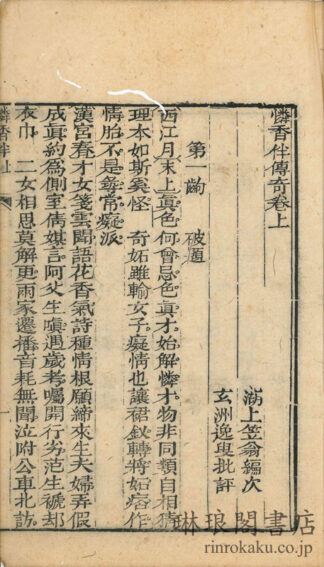 憐香伴傳奇卷上
湖上笠翁編次
玄洲逸叟批評
第一齣 破題
西江月末上真色何曾忌色真才始解憐才物非同類自相猜
理本如斯奚怪 奇妬雖輸女子癡情也讓裙釵轉將妬痞作
情胎不是尋常癡派
漢宮春才女箋雲聞語花香氣詩種情根願締來生夫婦弄假
成眞約爲側室倩媒言阿父生嗔遇歲考囑開行劣范生褫却
衣巾 二女相思莫解更兩家遷播音耗無聞泣附公車北訪
憐香伴
琳琅閣書店
rinrokaku.co.jp